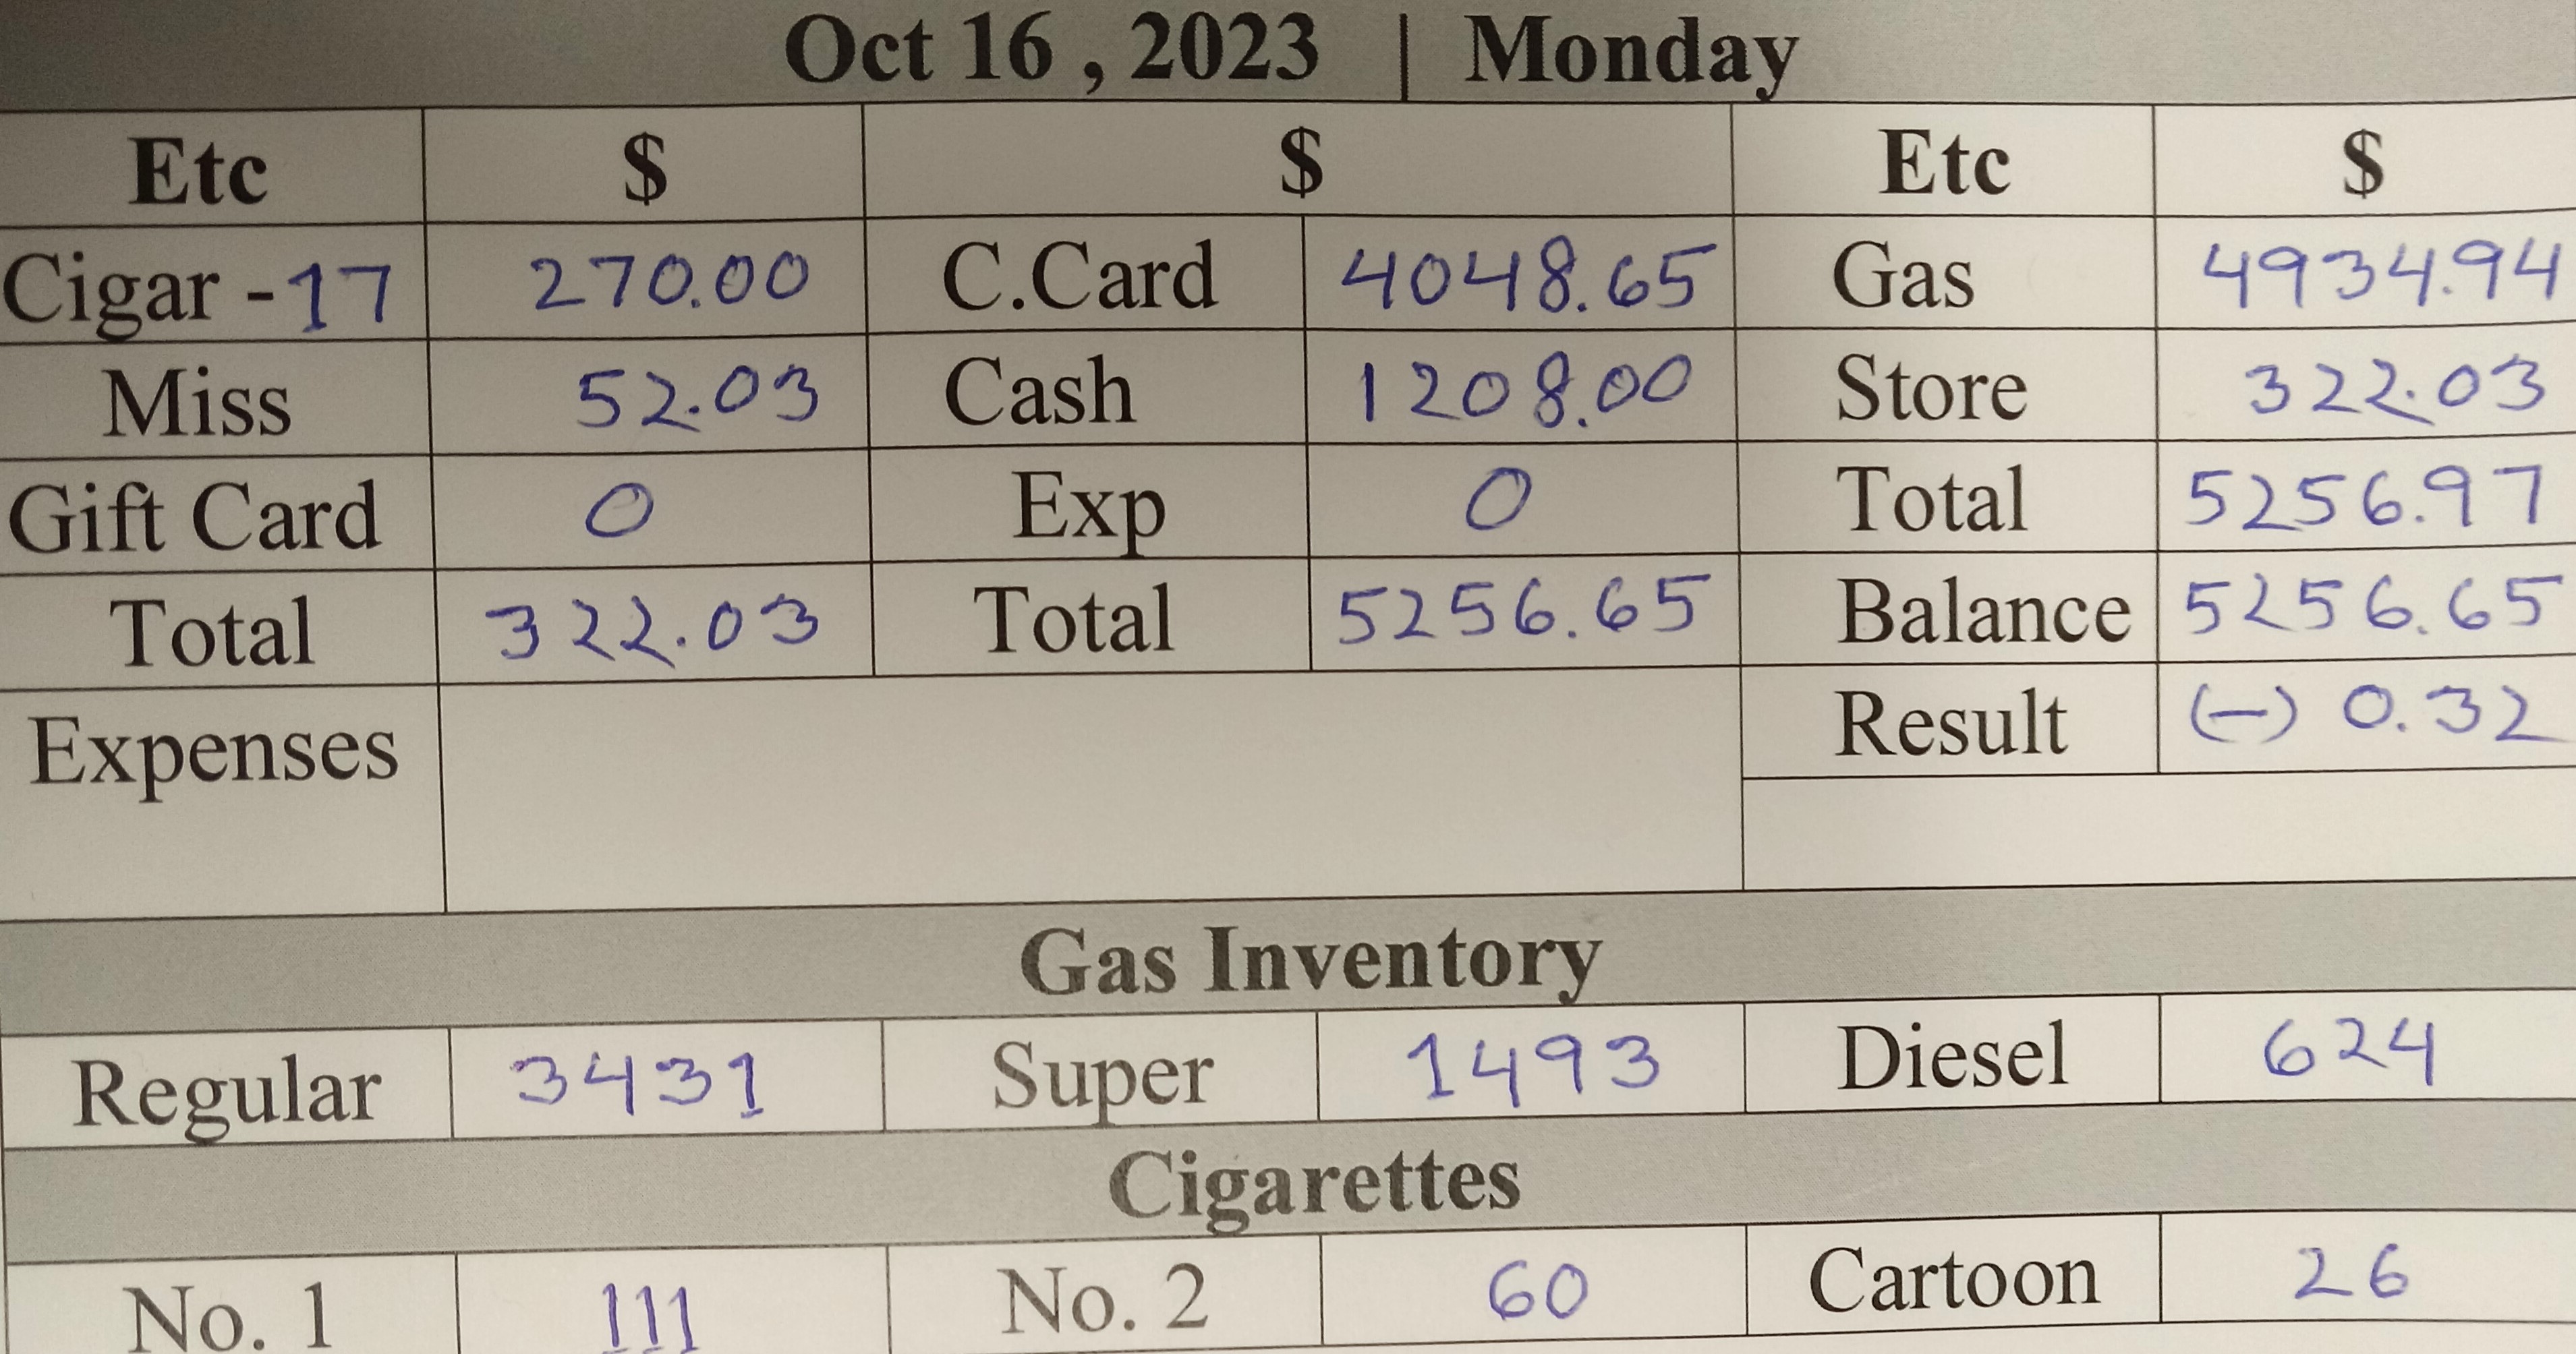 Oct 16 , 2023 | Monday
Etc $ $ Etc $
Cigar - 17 270.00 C.Card 4048.65 Gas 4934.94
Miss 52.03 Cash 1208.00 Store 322.03
Gift Card 0 Exp 0 Total 5256.97
Total 322.03 Total 5256.65 Balance 5256.65
Expenses Result (-) 0.32
Gas Inventory
Regular 3431 Super 1493 Diesel 624
Cigarettes
No. 1 111 No. 2 60 Cartoon 26